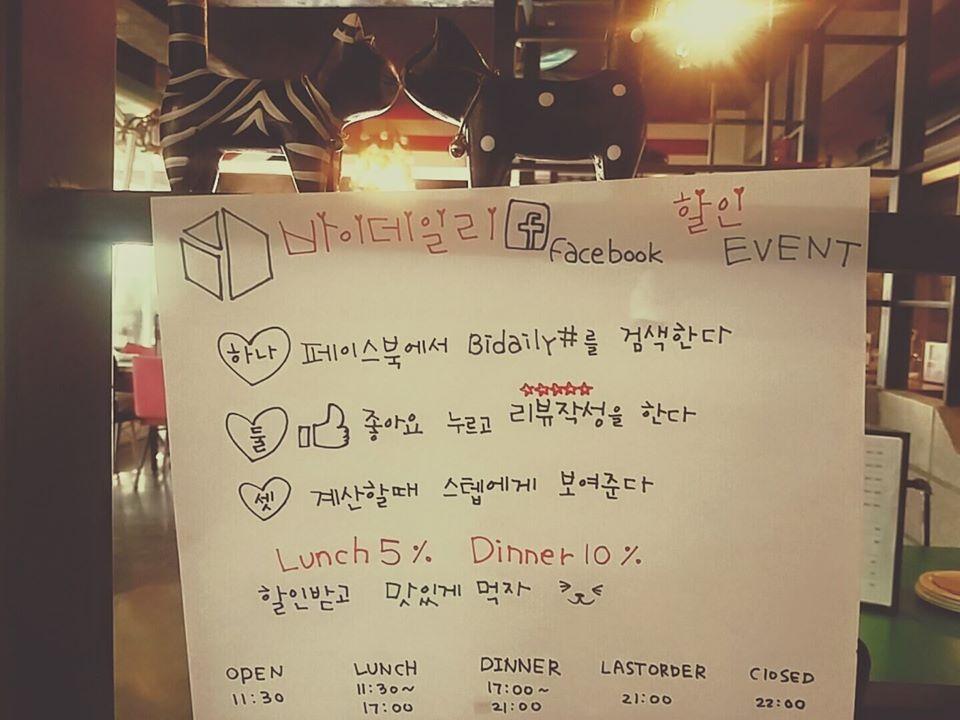 바이데일리 facebook 할인 EVENT
하나 페이스북에서 Bidaily#를 검색한다
둘 좋아요 누르고 리뷰작성을 한다
셋 계산할때 스텝에게 보여준다
Lunch 5% Dinner 10%
할인받고 맛있게 먹자
OPEN LUNCH DINNER LASTORDER CLOSED
11:30 11:30~ 17:00~ 21:00 22:00
17:00 21:00